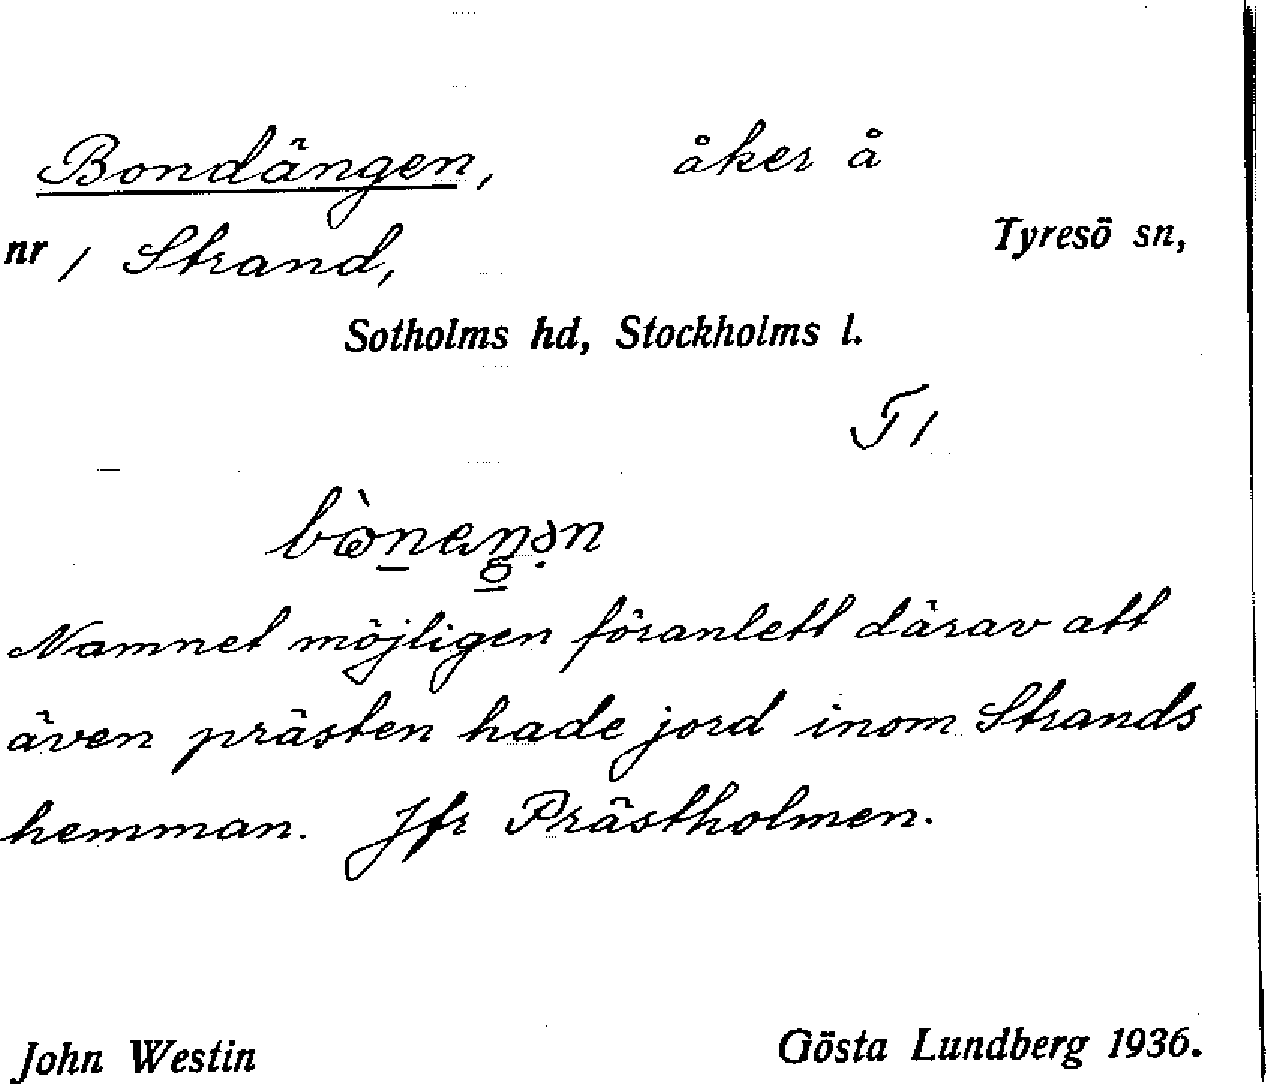 Bondängen, åker å
nr 1 Strand, Tyresö sn,
Sotholms hd, Stockholms l.
T1
Namnet möjligen föranlett därav att
även prästen hade jord inom Strands
hemman. Jfr Prästholmen.
John Westin Gösta Lundberg 1936.